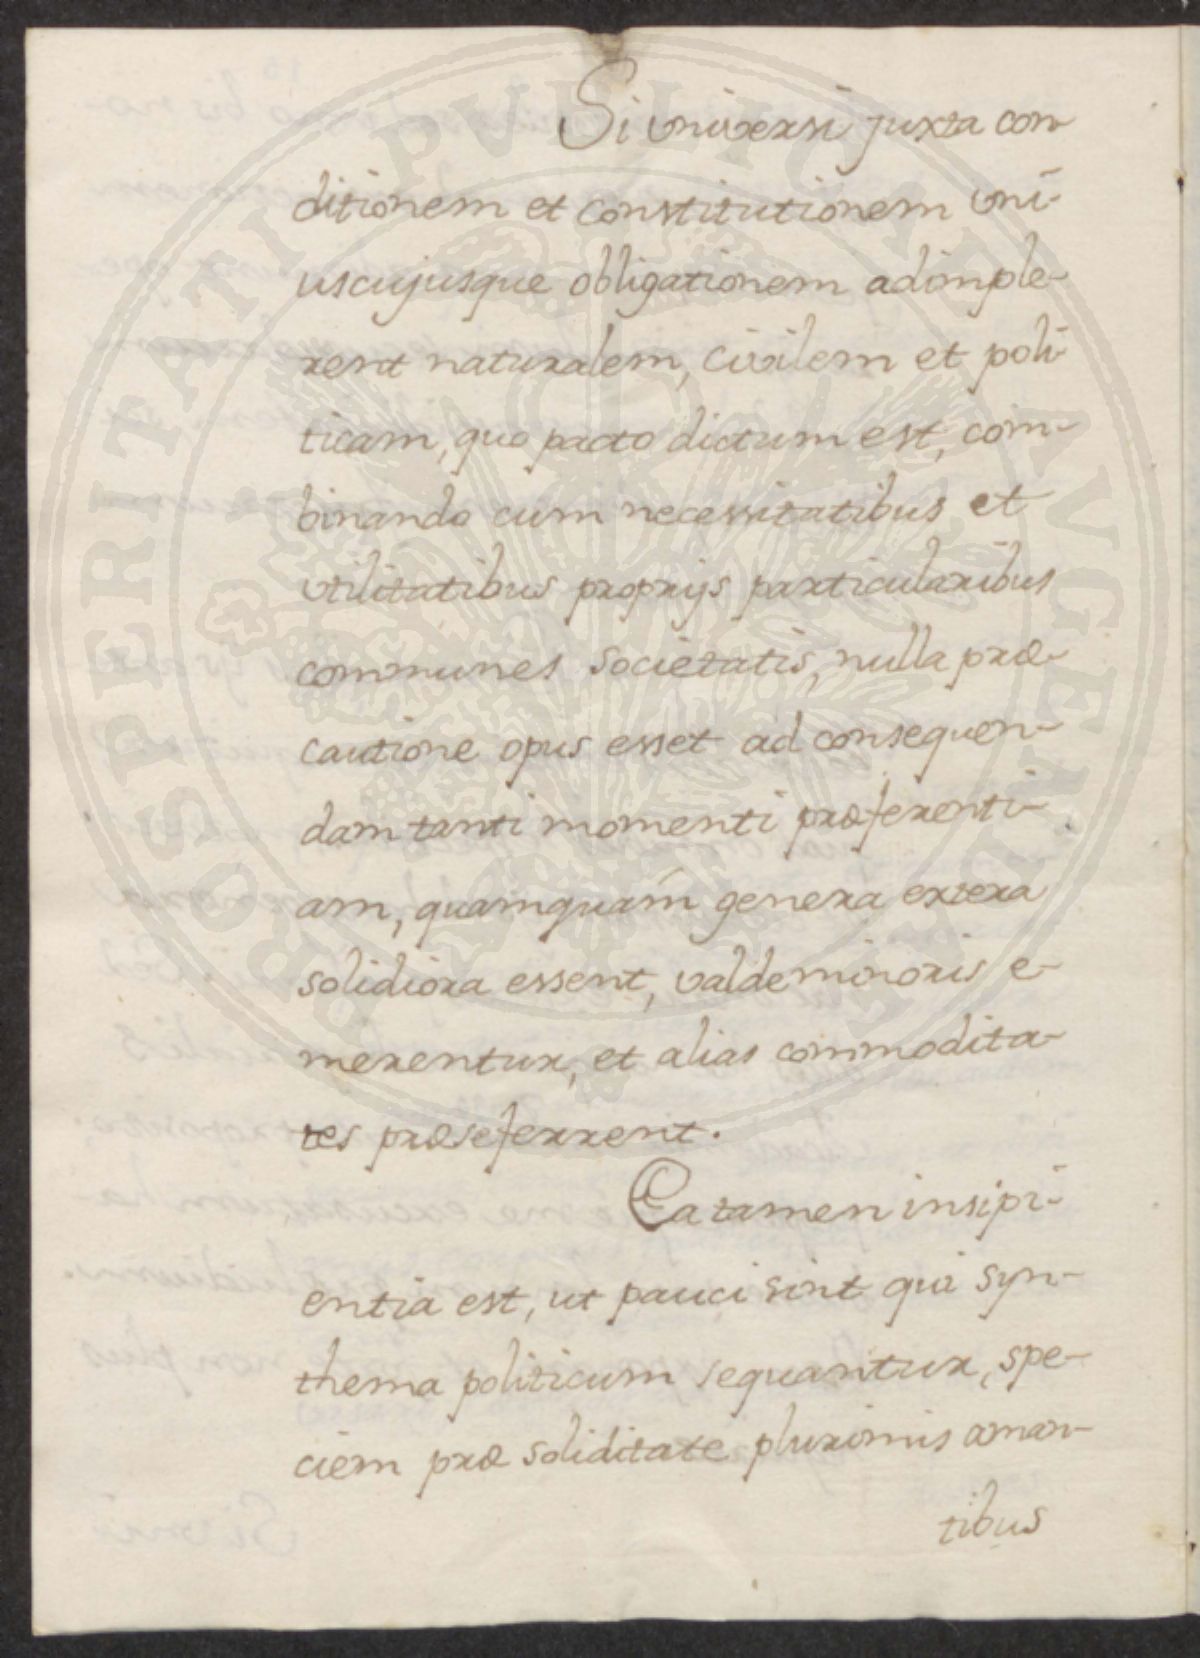 Si universi juxta con-
ditionem et constitutionem uni-
uscujusque obligationem adimple-
rent naturalem, civilem et poli-
ticam, quo pacto dictum est, com-
binando cum necessitatibus et
utilitatibus proprijs particularibus
communes societatis, nulla præ-
cautione opus esset ad consequen-
dam tanti momenti præferenti-
am, quamquam genera extera
solidiora essent, valde minoris e-
merentur, et alias commodita-
tes præseferrent.
Ea tamen insipi-
entia est, ut pauci sint qui syn-
thema politicum sequantur, spe-
ciem præ soliditate plurimis aman-
tibus
PROSPERITATI PVBLICAE AVGENDAE